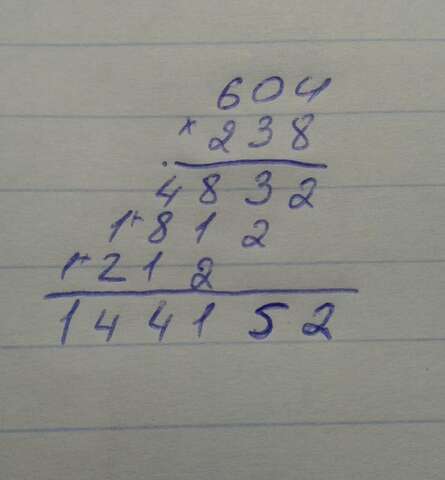 604
× 238
4832
1812
1212
144152